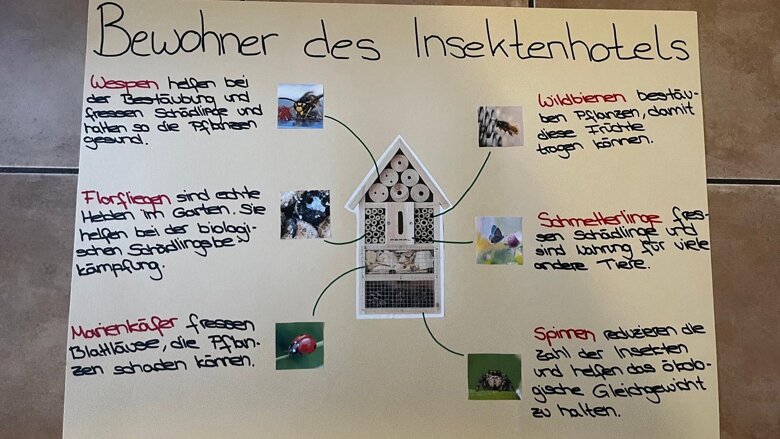 Bewohner des Insektenhotels
Wespen helfen bei
der Bestäubung und
fressen Schädlinge und
halten so die Pflanzen
gesund.
Florfliegen sind echte
Helden im Garten. Sie
helfen bei der biologi-
schen Schädlingsbe
kämpfung.
Marienkäfer fressen
Blattläuse, die Pflan-
zen schaden können.
Wildbienen bestäu-
ben Pflanzen, damit
diese Früchte
tragen können.
Schmetterlinge fres-
sen Schädlinge und
sind Nahrung für viele
andere Tiere.
Spinnen reduzieren die
Zahl der Insekten
und helfen das ökolo-
gische Gleichgewicht
zu halten.